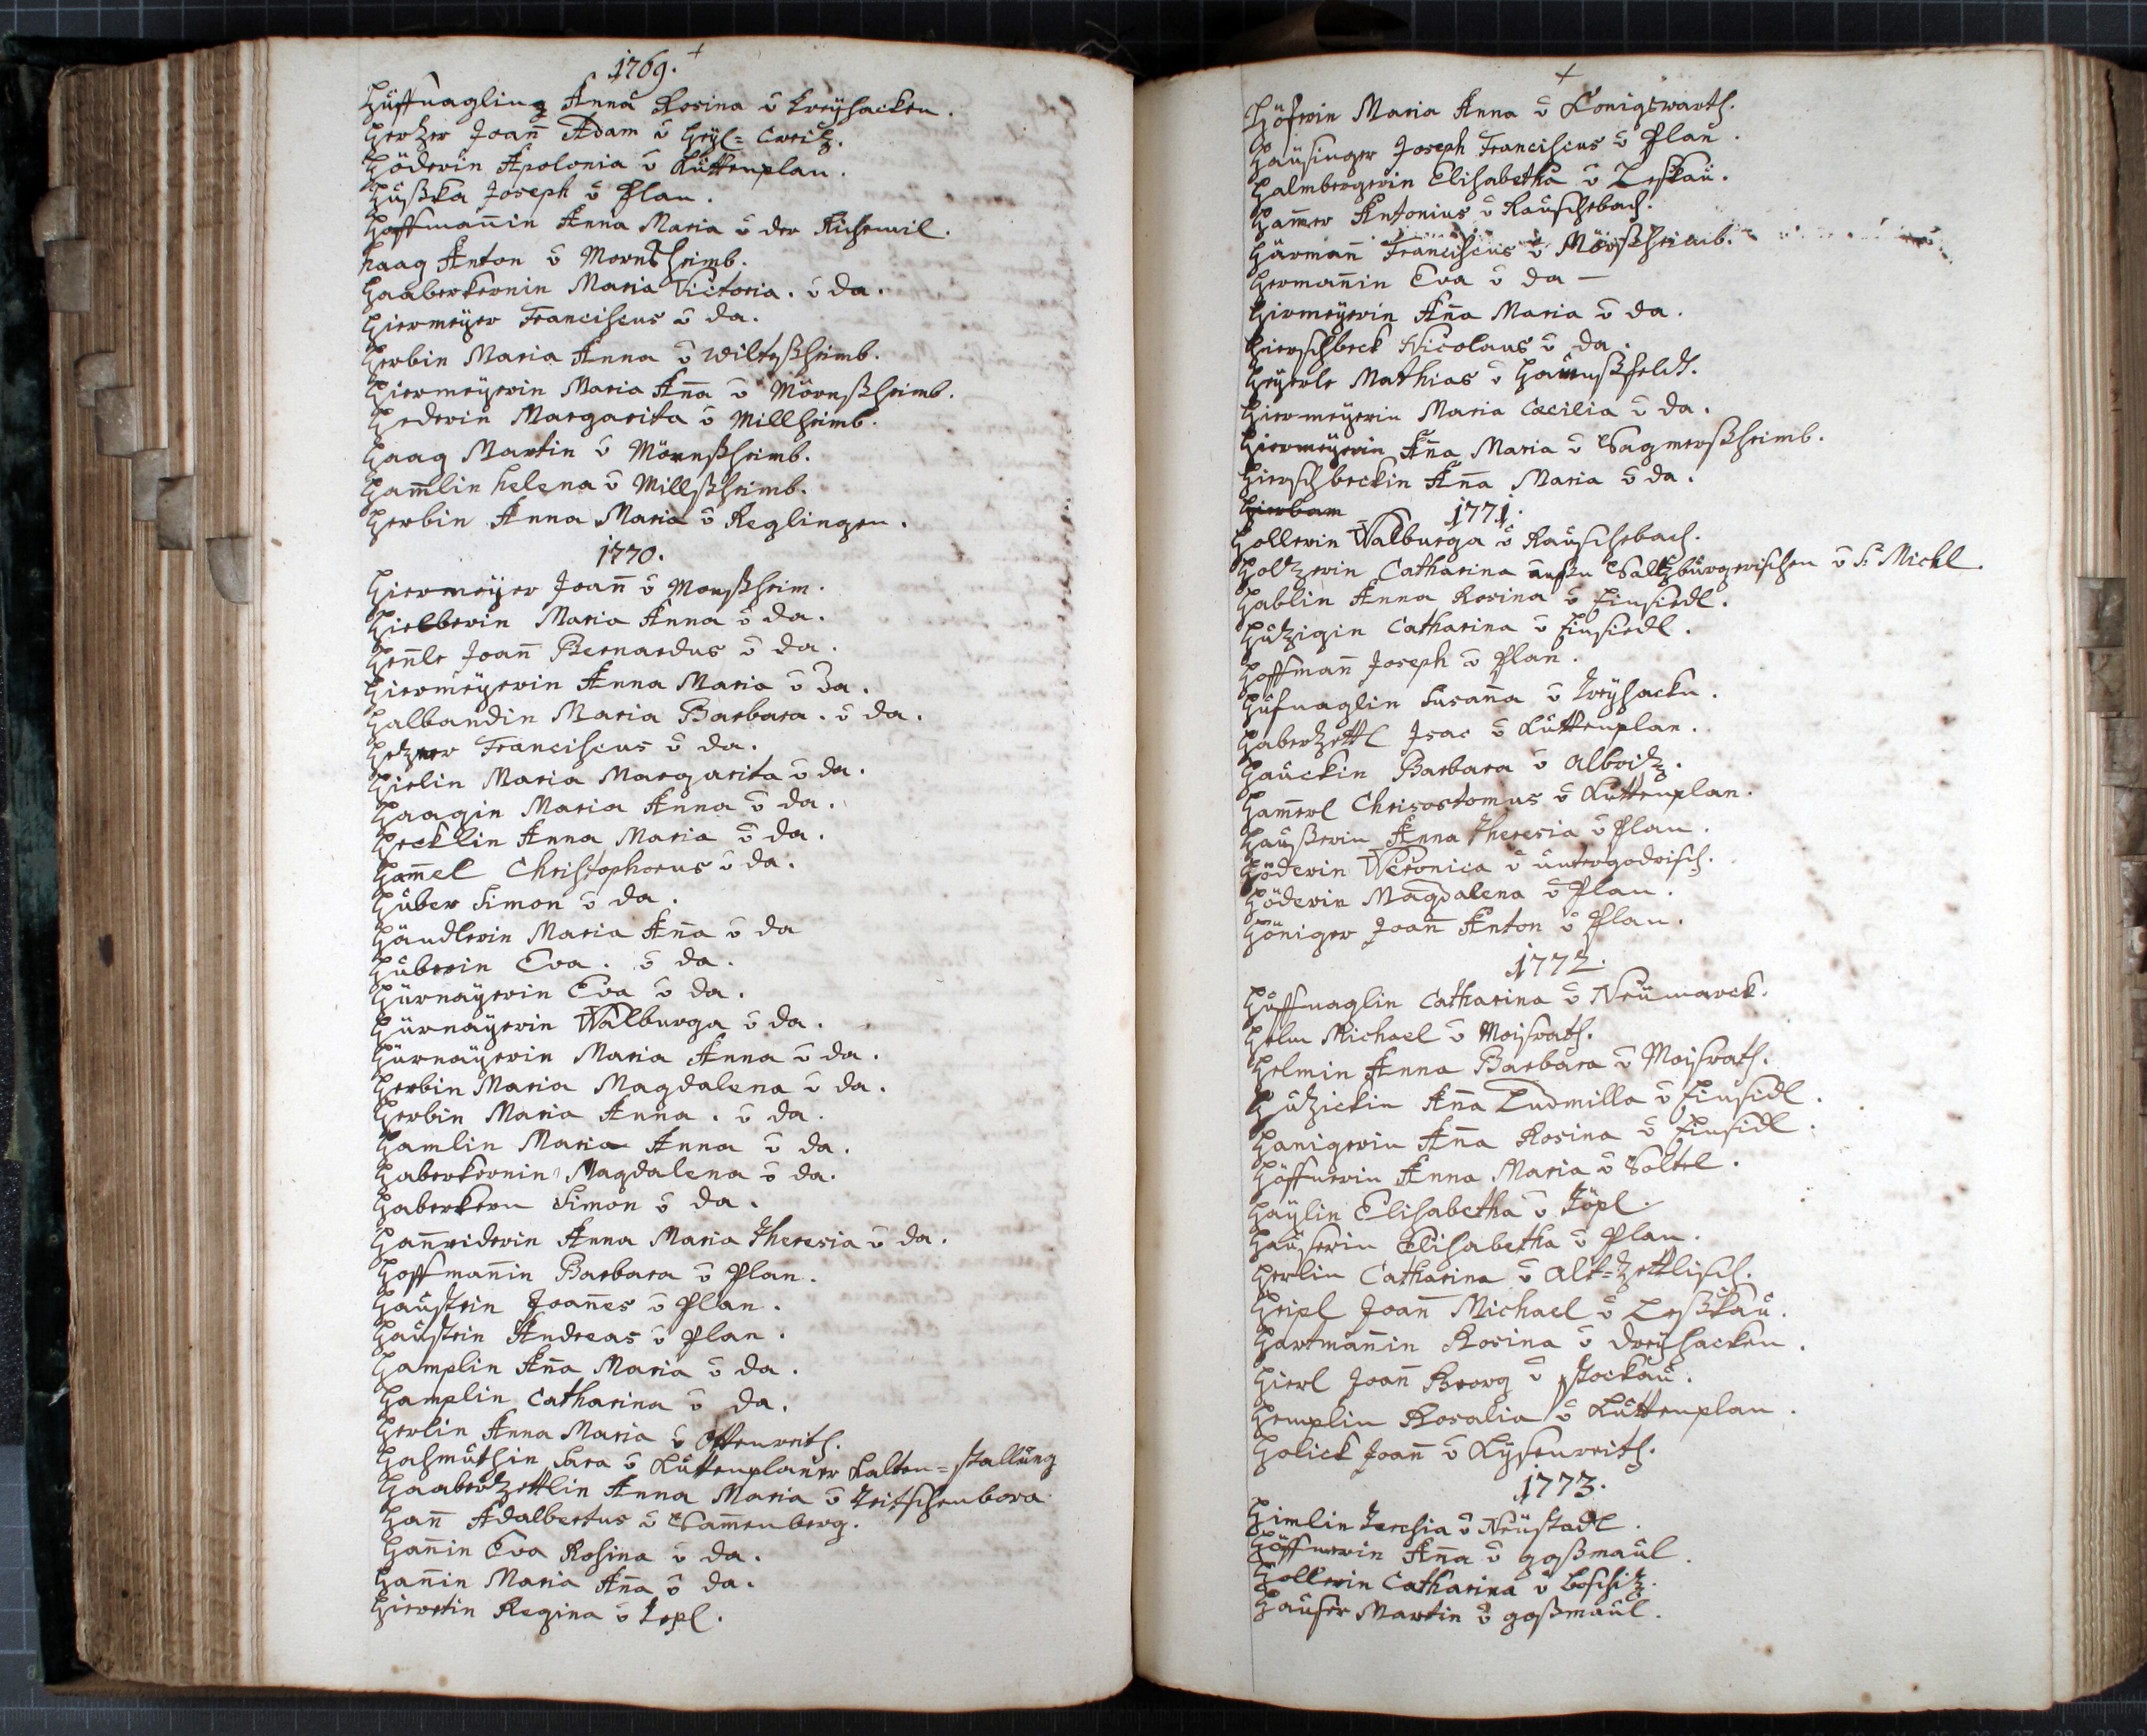 1769.
Hüffnaglin Anna Rosina v̄ dreÿhacken.
Hertzer Joan̄ Adam v̄ Heÿl= Creitz.
Höderin Apolonia v̄ Kuttenplan.
Hußka Joseph v̄ Plan.
Hoffman̄in Anna Maria v̄ der Richemil.
haag Anton v̄ Mornsheimb.
Haaberkernin Maria Victoria. v̄ da.
Hiermeÿer Franciscus v̄ da.
Herbin Maria Anna v̄ wiltzßheimb.
Hiermeÿerin Maria An̄a v̄ Mörnßheimb.
Hederin Margarita v̄ Millheimb.
Haag Martin v̄ Mörnßheimb.
Ham̄lin helena v̄ Millßheimb.
Herbin Anna Maria v̄ Reglingen.
1770.
Hiermeÿer Joan̄ v̄ Monßheim.
Hielberin Maria Anna v̄ da.
Hen̄le Joan̄ Bernardus v̄ da.
Hiermeÿerin Anna Maria v̄ Da.
Halbandin Maria Barbara. v̄ da.
Hetzner Franciscus v̄ da.
Hielin Maria Margarita v̄ da.
Haagin Maria Anna v̄ da.
Hecklin Anna Maria v̄ da.
Ham̄el Christophorus v̄ da.
Huber Simon v̄ da.
Händlerin Maria An̄a v̄ da
Huberin Eva. v̄ da.
Hürnaÿerin Eva v̄ da.
Hürnaÿerin Walburga v̄ da.
Hürnaÿerin Maria Anna v̄ da.
Herbin Maria Magdalena v̄ da.
Herbin Maria Anna. v̄ da.
Hamlin Maria Anna v̄ da.
Haberkernin Magdalena v̄ da.
Haberkern Simon v̄ da.
Han̄riderin Anna Maria Theresia v̄ da.
Hoffman̄in Barbara v̄ Plan.
Haustein Joan̄es v̄ Plan.
Haustein Andreas v̄ Plan.
Hamplin An̄a Maria v̄ da.
Hamplin Catharina v̄ da.
Herlin Anna Maria v̄ Ottenreith.
Hahmuthin Sara v̄ Kuttenplaner kalten=stallung
Haaberzettlin Anna Maria v̄
Han̄ Adalbertus v̄ Sam̄enberg.
Han̄in Eva Rosina v̄ da.
Han̄in Maria An̄a v̄ da.
Hieretin Regina v̄ Tepl.
Höferin Maria Anna v̄ Königswarth.
Hausinger Joseph Franciscus v̄ Plan.
Halmbergerin Elisabetha v̄ Leskau.
Ham̄er Antonius v̄ Rauschebach.
Härman̄ Franciscus v̄ Mörßheimb.
Herman̄in Eva v̄ da —
Hirmeÿerin An̄a Maria v̄ da.
Hierschbeck Nicolaus v̄ da.
Heÿerle Mathias v̄ Haunßfeldt.
Hiermeÿerin Maria Cæcilia v̄ da.
Hiermeÿerin An̄a Maria v̄ Sagmerßheimb.
Hierschbeckin An̄a Maria v̄ da.
Hierbam
1771.
Hollerin Walburga v̄ Rauschebach.
Holtzerin Catharina außen Saltzburgerischen v̄ St Michl.
Hablin Anna Rosina v̄ Einsiedl.
Hutzigin Catharina v̄ Einsiedl.
Hoffman̄ Joseph v̄ Plan.
Hufnaglin Susan̄a v̄ dreÿhacken.
Haberzettl Isac v̄ Kuttenplan.
Hauckin Barbara v̄ Albritz.
Ham̄erl Chrisostomus v̄ Kuttenplan.
Haußerin Anna Theresia v̄ Plan.
Höderin Veronica v̄ untergodrisch.
Höderin Magdalena v̄ Plan.
Höniger Joan̄ Anton v̄ Plan.
1772.
Hüffnaglin Catharina v̄ Neümarck.
Helm Michael v̄ Moisrath.
Helmin Anna Barbara v̄ Moisrath.
Hutzickin An̄a Ludmilla v̄ Einsidl.
Hanigerin An̄a Rosina v̄ Einsidl.
Höffnerin Anna Maria v̄ Soltel.
Häÿlin Elisabetha v̄ Töpl.
Hauserin Elisabetha v̄ Plan.
Herlin Catharina v̄ Alt=zettlisch.
Heipl Joan̄ Michael v̄ Leßkau.
Hartman̄in Rosina v̄ dreÿhacken.
Hierl Joan̄ Georg v̄ Stockau.
Hemplin Rosalia v̄ Kuttenplan.
Holick Joan̄ v̄ Lysenreith.
1773.
Himlin Teresia v̄ Neüstadl.
Höffnerin An̄a v̄ goßmaul.
Hollerin Catharina v̄ boschitz.
Hauser Martin v̄ goßmaul.